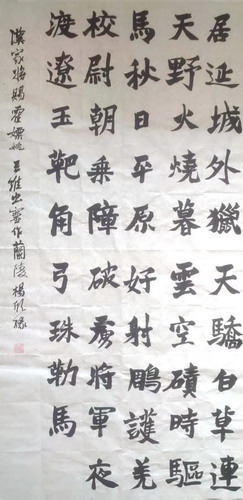 居延城外獵天驕白草連
天野火燒暮雲空磧時驅
馬秋日平原好射鵰護羌
校尉朝乘障破虜將軍夜
渡遼玉靶角弓珠勒馬
漢家將賜霍嫖姚王維出塞作蘭陵楊